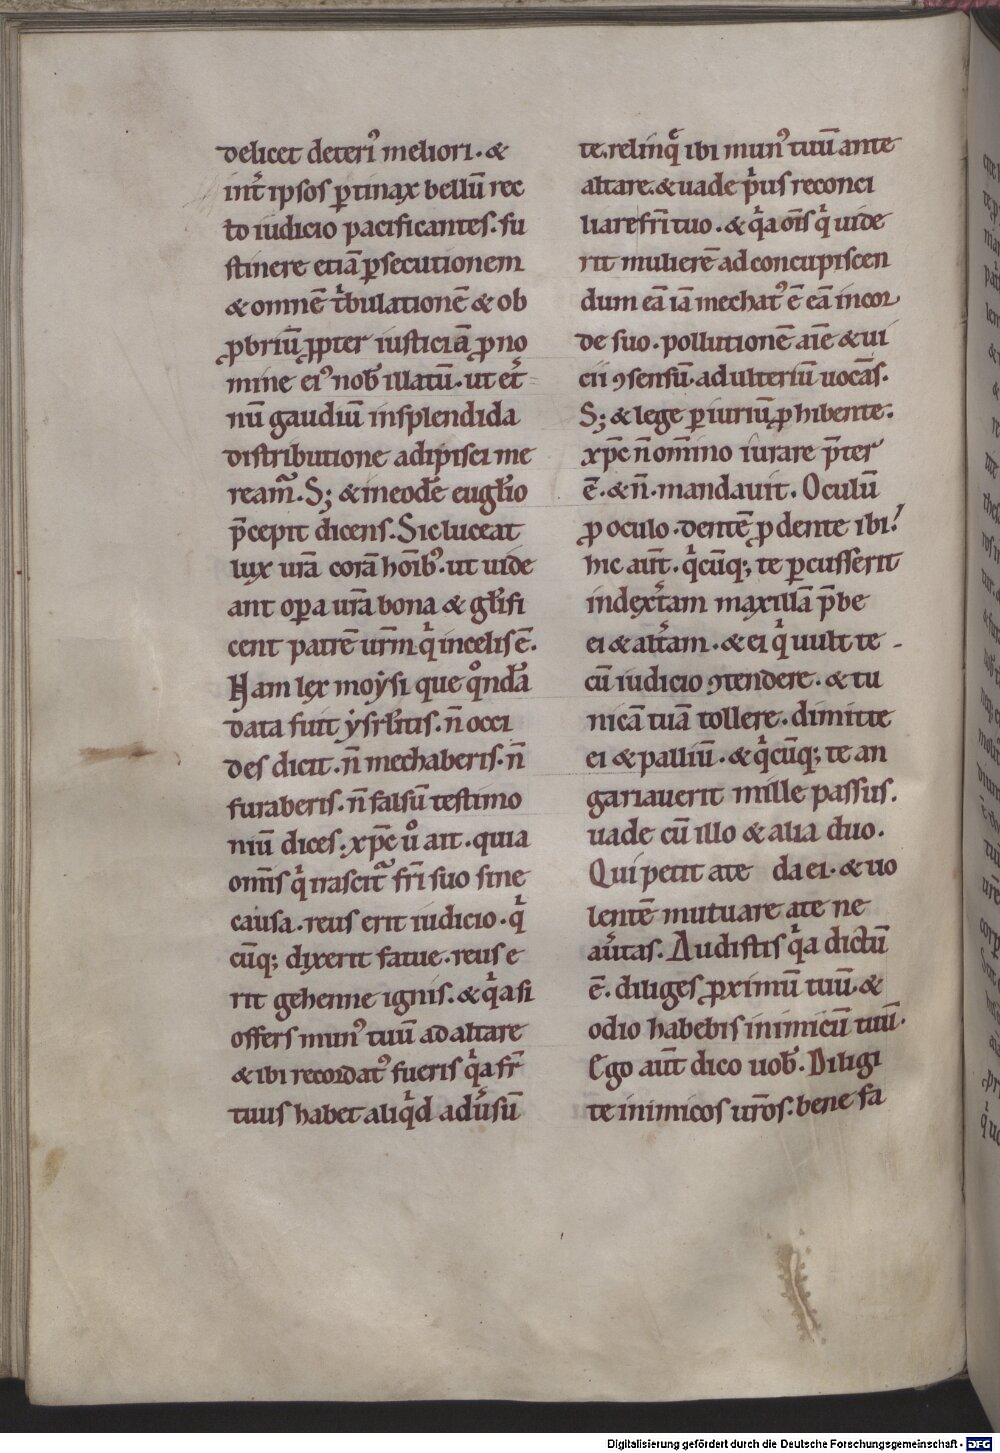 delicet deteri᾽ meliori · &
int̃ ipsos ꝑtinax bellũ rec
to iudicio pacificantes · su
stinere etiã ꝑsecutionem
& omnẽ t̾bulationẽ & ob
ꝓbriũ ꝓpter iusticiã ꝓ no
mine ei᾽ nob̃ illatũ · ut et̾
nũ gaudiũ insplendida
distributione adipisci me
ream᷑ . S; & in eodẽ eugl̃io
p̃cepit dicens . Sic luceat
lux ur̃a corã hoĩb᾽ · ut uide
ant oꝑa ur̃a bona & gl̃ifi
cent patrẽ ur̃m qͥ incelis ẽ .
Nam lex moẏsi que qͦndã
data fuit ẏsrl̃itis . ñ occi
des dicit . ñ mechaberis . ñ
furaberis . ñ falsũ testimo
niũ dices . xp̃c uͦ ait . quia
omĩs qͥ irascit᷑ fr̃i suo sine
causa . reus erit iudicio . qͥ
cũq; dixerit fatue . reus e
rit gehenne ignis . & qͥa si
offers mun᾽ tuũ ad altare
& ibi recordat᾽ fueris qͥa fr̃
tuus habet aliqͥd adu̾sũ
te . relinq̃ ibi mun᾽ tuũ ante
altare . & uade pͥus reconci
liare fr̃i tuo . & qͥa oĩs qͥ uide
rit mulierẽ ad concupiscen
dum eã iã mechat᾽ ẽ eã in cor
de suo . pollutionẽ aĩe & ui
cii ꝯsensũ . adulteriũ uocãs .
S; & lege ꝑiuriũ ꝓhibente .
xp̃c ñ om̃ino iurare p̃ter
ẽ . & ñ . mandauit . Oculũ
ꝓ oculo . dentẽ ꝓ dente ibi !
hic aũt . qͥcũq; te ꝑcusserit
in dext̾am maxillã p̃be
ei & alt̾am . & ei qͥ uult te -
cũ iudicio ꝯtendere . & tu
nicã tuã tollere . dimitte
ei & palliũ . & qͥcũq; te an
gariauerit mille passus .
uade cũ illo & alia duo .
Qui petit a te da ei . & uo
lentẽ mutuare a te ne
au̾tas . Audistis qͥa dictũ
ẽ . diliges ꝓximũ tuũ . &
odio habebis inimicũ tuũ .
Ego aũt dico uob̃ . Diligi
te inimicos ur̃os . bene fa
Digitalisierung gefördert durch die Deutsche Forschungsgemeinschaft - DFG